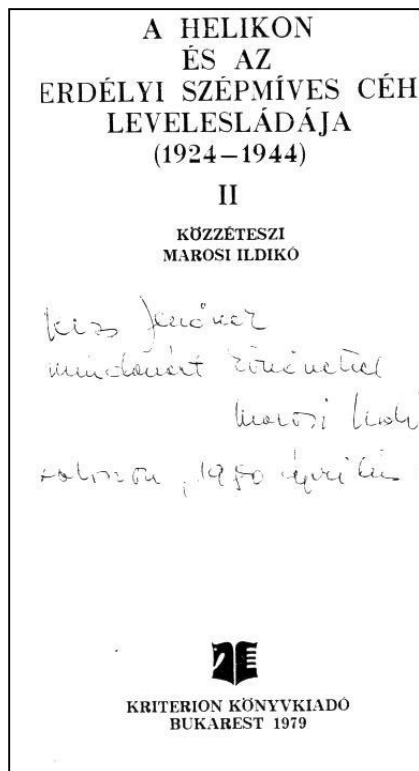 A HELIKON
ÉS AZ
ERDÉLYI SZÉPMÍVES CÉH
LEVELESLÁDÁJA
(1924–1944)
II
KÖZZÉTESZI
MAROSI ILDIKÓ
Kiss Jenőnek
Marosi
1980 április
KRITERION KÖNYVKIADÓ
BUKAREST 1979